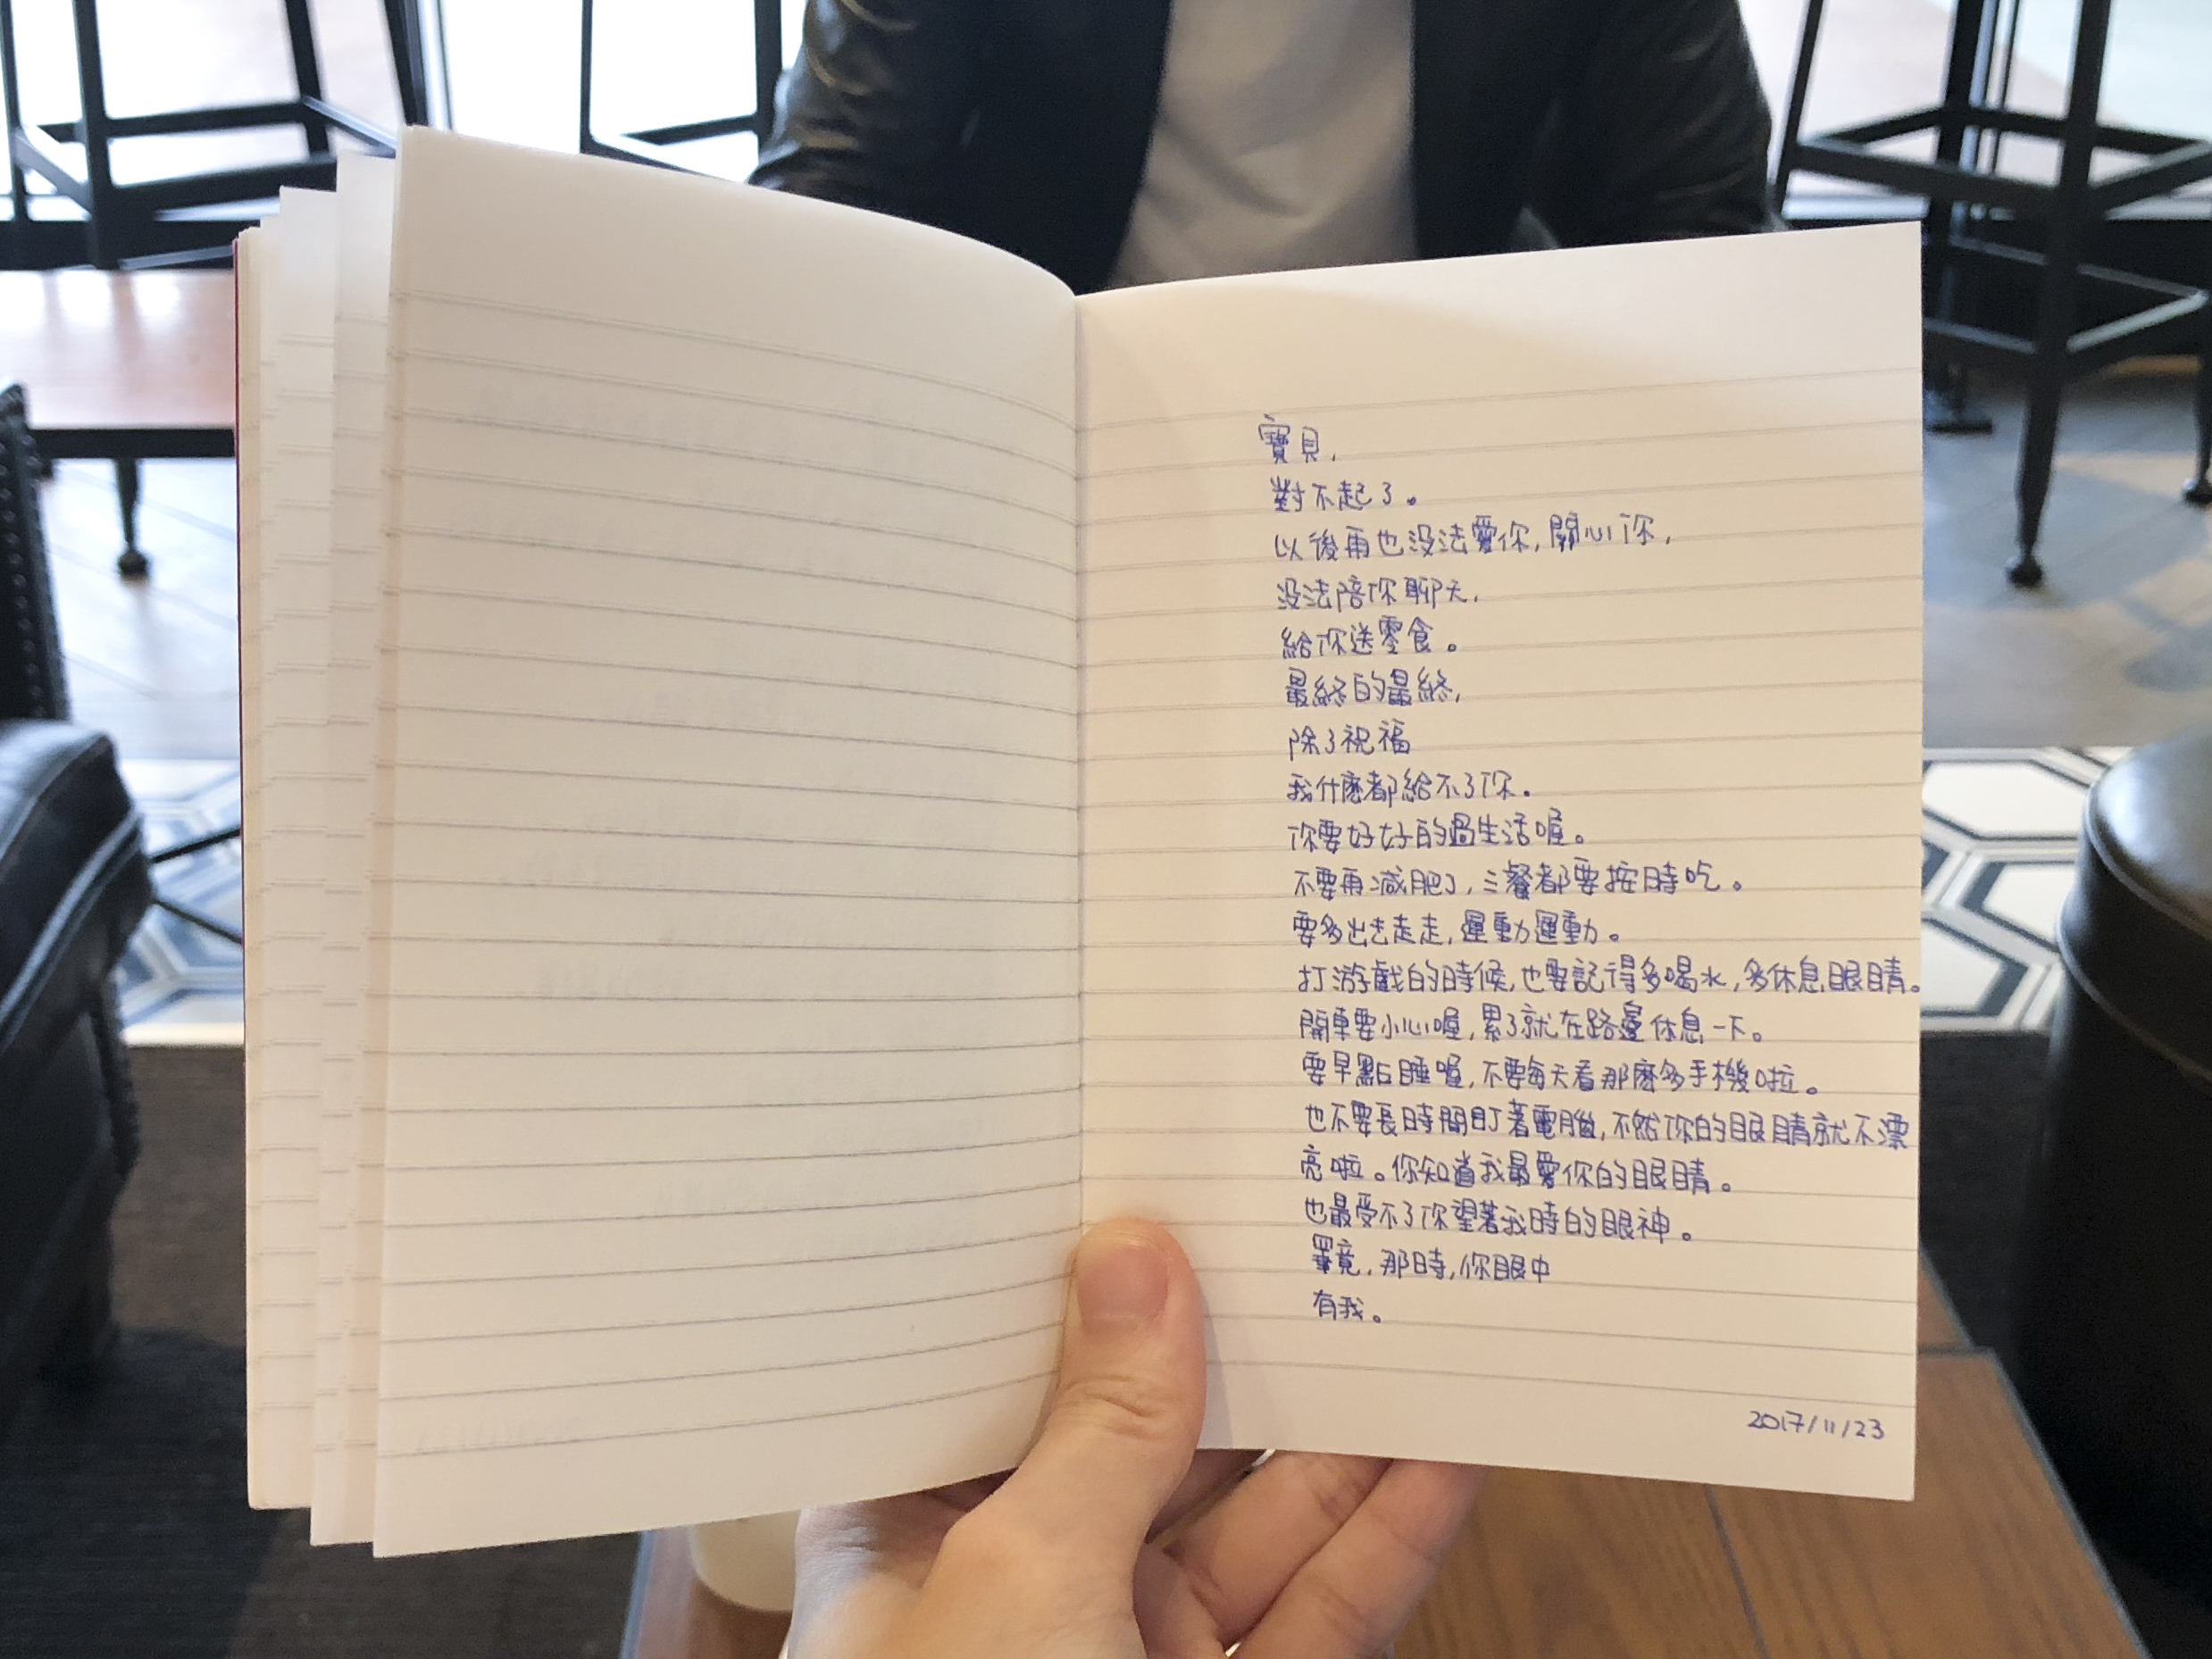 寶貝，
對不起了。
以後再也没法愛你，關心你，
没法陪你聊天，
給你送零食。
最終的最終，
除了祝福
我什麽都給不了你。
你要好好的過生活喔。
不要再减肥了，三餐都要按時吃。
要多出去走走，運動運動。
打游戲的時候，也要記得多喝水，多休息眼睛。
開車要小心喔，累了就在路邊休息一下。
要早點睡喔，不要每天看那麽多手機啦。
也不要長時間盯著電腦，不然你的眼睛就不漂
亮啦。你知道我最愛你的眼睛。
也最受不了你望著我時的眼神。
畢竟，那時，你眼中
有我。
2017/11/23